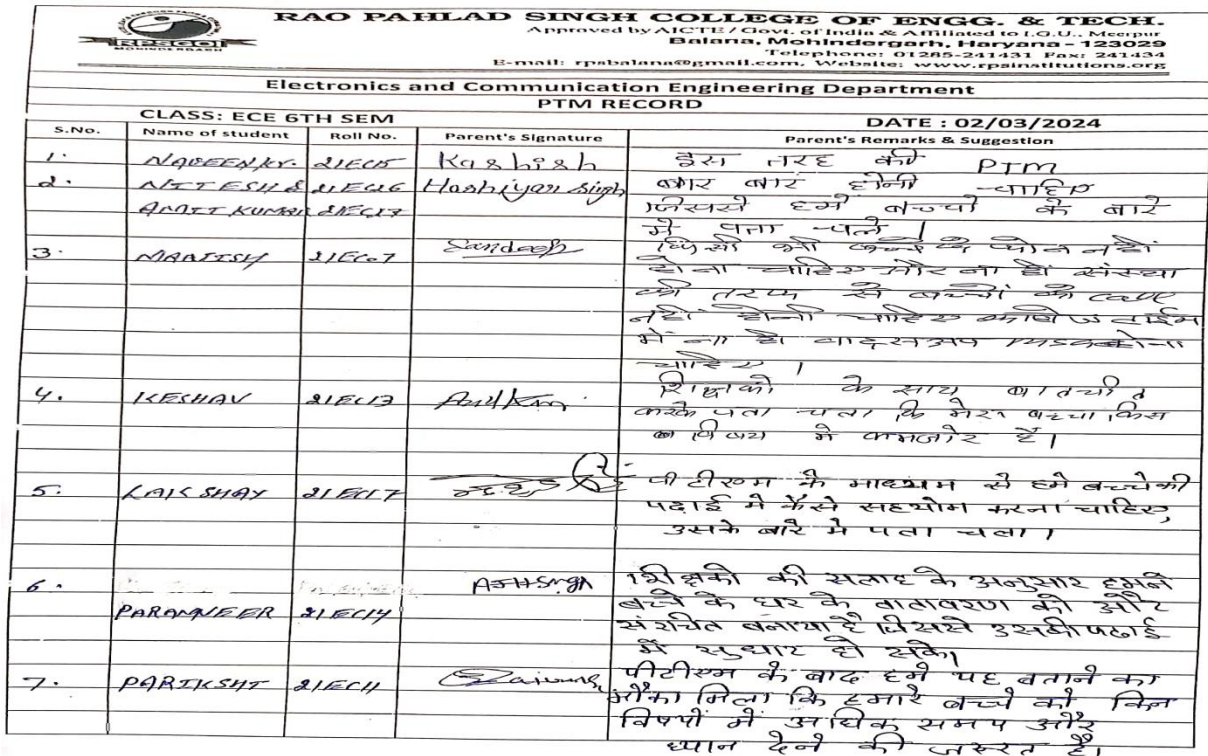 RAO PAHLAD SINGH COLLEGE OF ENGG. & TECH.
Approved by AICTE / Govt. of India & Affiliated to I.G.U., Meerpur
Balana, Mohindergarh, Haryana - 123029
Telephone: 01285-241431 Fax: 241434
E-mail: rpsbalana@gmail.com, Website: www.rpsinstitutions.org
RPSGOI
MOHINDERGARH
Electronics and Communication Engineering Department
PTM RECORD
CLASS: ECE 6TH SEM DATE : 02/03/2024
S.No. Name of student Roll No. Parent's Signature Parent's Remarks & Suggestion
1. NAVEEN KR. 21EC15 Kashish इस तरह की PTM
2. NITESH & 21EC26 Hoshiyar Singh बार बार होनी चाहिए
AMIT KUMAR जिससे हमें बच्चों के बारे
में पता चले।
3. MANISH 21EC07 Sandeep किसी भी बच्चे के फोन नहीं
होना चाहिए और ना ही संस्था
की तरफ से बच्चों की call
नहीं होनी चाहिए कॉलेज टाईम
में ना ही वाट्सअप
चाहिए।
4. KESHAV 21EC13 शिक्षकों के साथ बातचीत
करके पता चला कि मेरा बच्चा किस
विषय में कमजोर है।
5. LAKSHAY 21EC17 पीटीएम के माध्यम से हमे बच्चे की
पढाई मे कैसे सहयोग करना चाहिए,
उसके बारे मे पता चला।
6. शिक्षको की सलाह के अनुसार हमने
PARAMVEER 21EC14 बच्चे के घर के वातावरण को और
संरचित बनाया है जिससे उसकी पढाई
में सुधार हो सके।
7. PARIKSHT 21EC11 पीटीएम के बाद हमे यह बताने का
मौका मिला कि हमारे बच्चे को किन
विषयों में अधिक समय और
ध्यान देने की जरूरत है।